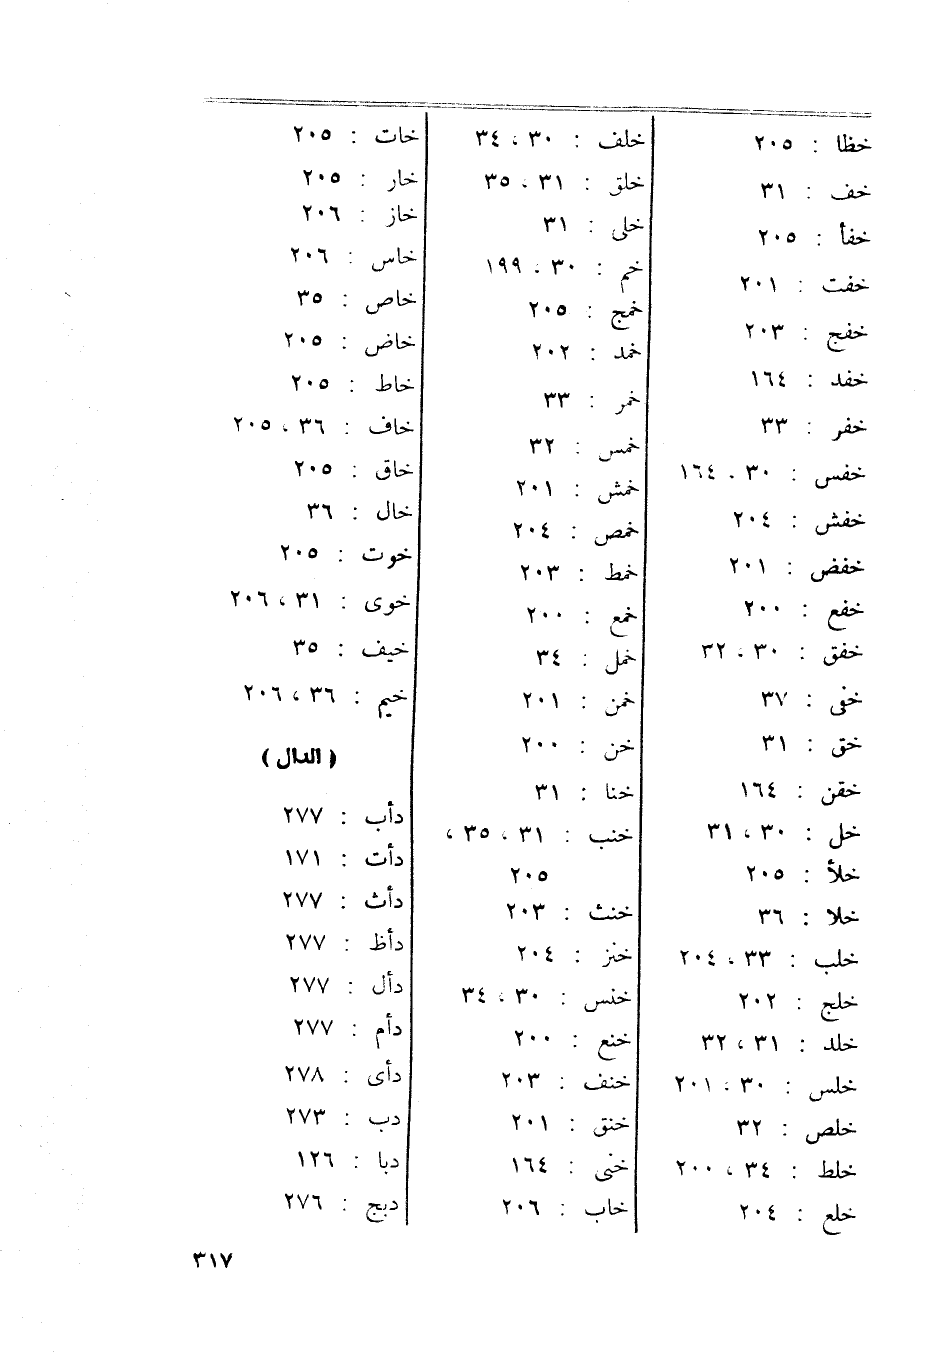 خظا : ٢٠٥
خف : ٣١
خفأ : ٢٠٥
خفت : ٢٠١
خفج : ٢٠٣
خفد : ١٦٤
خفر : ٣٣
خفس : ٣٠ ، ١٦٤
خفش : ٢٠٤
خفض : ٢٠١
خفع : ٢٠٠
خفق : ٣٠ ، ٣٢
خفى : ٣٧
خق : ٣١
خقن : ١٦٤
خل : ٣٠ ، ٣١
خلأ : ٢٠٥
خلا : ٣٦
خلب : ٣٣ ، ٢٠٤
خلج : ٢٠٢
خلد : ٣١ ، ٣٢
خلس : ٣٠ ، ٢٠١
خلص : ٣٢
خلط : ٣٤ ، ٢٠٠
خلع : ٢٠٤
خلف : ٣٠ ، ٣٤
خلق : ٣١ ، ٣٥
خلى : ٣١
خم : ٣٠ ، ١٩٩
خمج : ٢٠٥
خمد : ٢٠٢
خمر : ٣٣
خمس : ٣٢
خمش : ٢٠١
خمص : ٢٠٤
خمط : ٢٠٣
خمع : ٢٠٠
خمل : ٣٤
خمن : ٢٠١
خن : ٢٠٠
خنا : ٣١
خنب : ٣١ ، ٣٥ ،
٢٠٥
خنث : ٢٠٣
خنز : ٢٠٤
خنس : ٣٠ ، ٣٤
خنع : ٢٠٠
خنف : ٢٠٣
خنق : ٢٠١
خنى : ١٦٤
خاب : ٢٠٦
خات : ٢٠٥
خار : ٢٠٥
خاز : ٢٠٦
خاس : ٢٠٦
خاص : ٣٥
خاض : ٢٠٥
خاط : ٢٠٥
خاف : ٣٦ ، ٢٠٥
خاق : ٢٠٥
خال : ٣٦
خوت : ٢٠٥
خوى : ٣١ ، ٢٠٦
خيف : ٣٥
خيم : ٣٦ ، ٢٠٦
( الدال )
دأب : ٢٧٧
دأت : ١٧١
دأث : ٢٧٧
دأظ : ٢٧٧
دأل : ٢٧٧
دأم : ٢٧٧
دأى : ٢٧٨
دب : ٢٧٣
دبا : ١٢٦
دبج : ٢٧٦
٣١٧